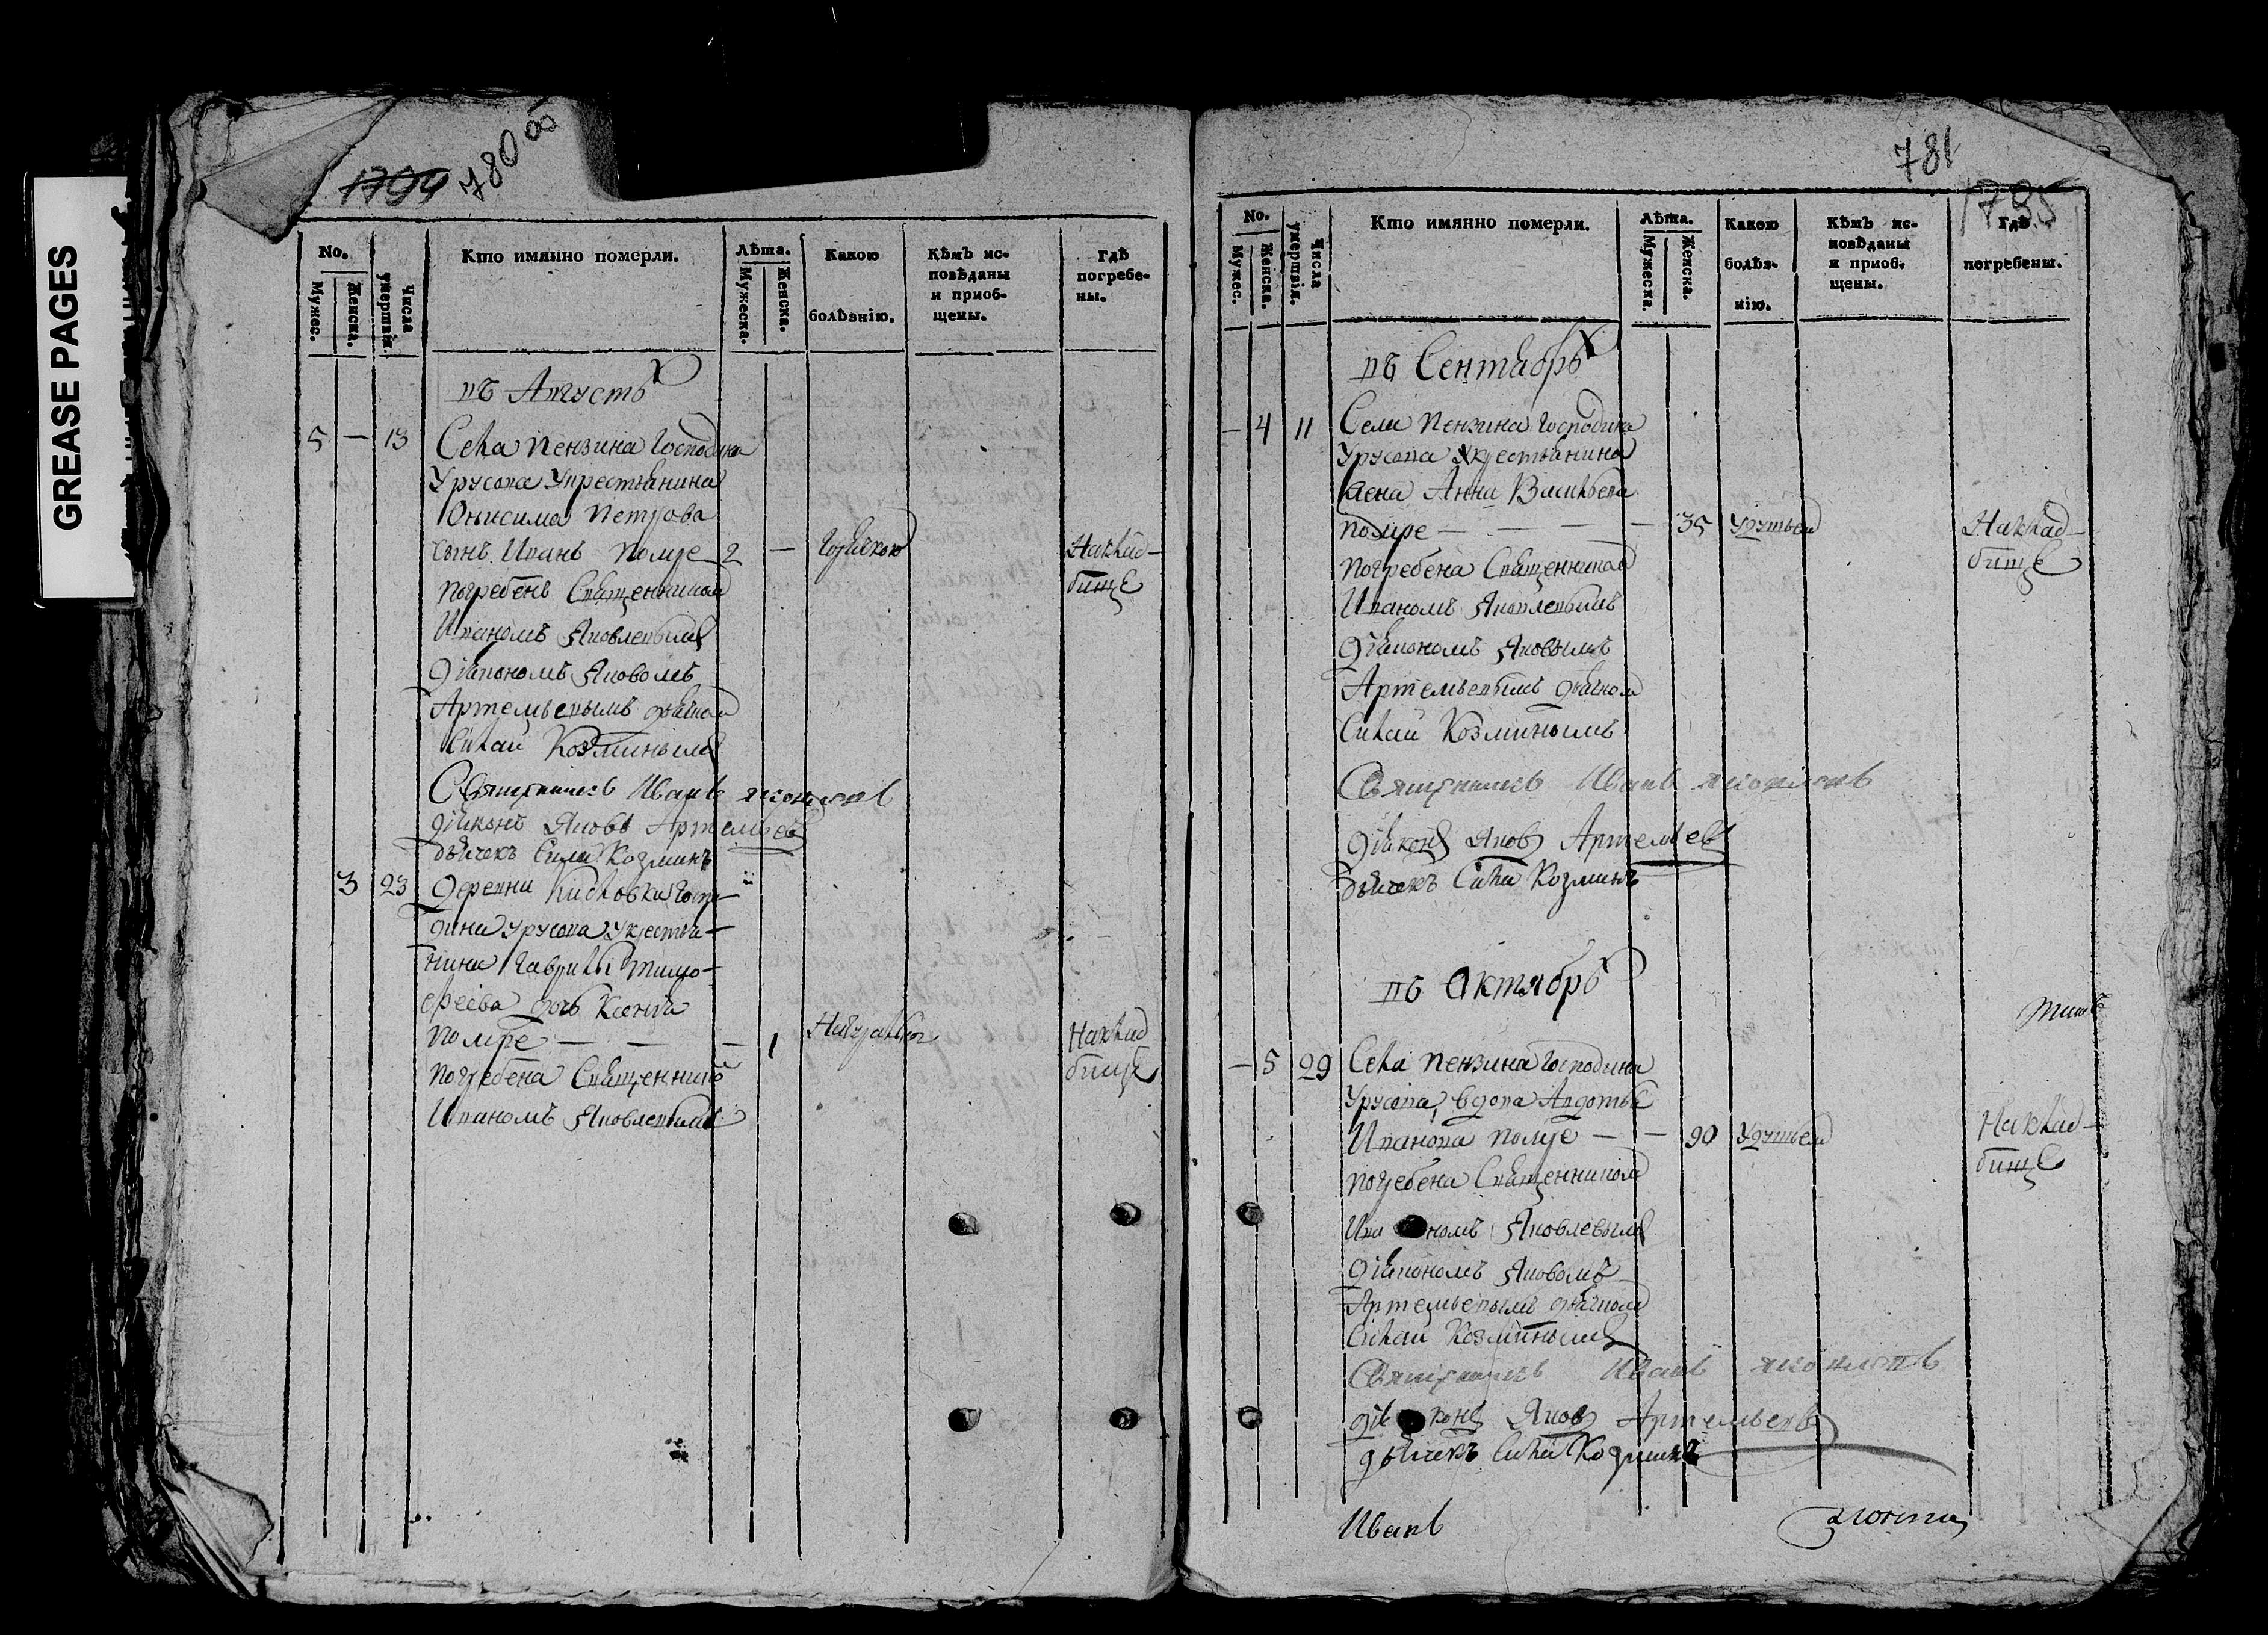 GREASE PAGES
1794 780 об
No.
Мужес.
Женска.
Числа умертвiя.
Кто имянно померли.
Лѣта.
Мужеска.
Женска.
Какою болѣзнiю.
Кѣмъ ис-
повѣданы
и прiоб-
щены.
Гдѣ
погребе-
ны.
въ Августѣ
5 — 13 Села Пензина Господина
Урусова Укрестьянина
Онисима Петрова
сынъ Иванъ помре 2 — Горячкою На клад-
погребенъ Священникомъ бище
Иваномъ Яковлевымъ
дiакономъ Яковомъ
Артемьевымъ дьячкомъ
Силай Козминымъ
Священникъ Иванъ Яковлевъ
дiаконъ Яковъ Артемьевъ
дьячекъ Сила Козминъ
3 23 деревни Киселовки Госпо-
дина Урусова Укрестья-
нина Гаврилы Тимо-
феева дочь Ксенiя
помре — — — 1 На клад
погребена Священникомъ бище
Иваномъ Яковлевымъ
781
1795
No.
Мужес.
Женска.
Числа умертвiя.
Кто имянно померли.
Лѣта.
Мужеска.
Женска.
Какою
болѣз-
нiю.
Кѣмъ ис-
повѣданы
и прiоб-
щены.
Гдѣ
погребены.
въ Сентябрѣ
— 4 11 Села Пензина Господина
Урусова Укрестьянина
жена Анна Васильева
помре — — — — 35 Удушьем На клад-
погребена Священникомъ бище
Иваномъ Яковлевымъ
дiакономъ Яковымъ
Артемьевымъ дьячкомъ
Силай Козминымъ
Священникъ Иванъ Яковлевъ
дiаконъ Яковъ Артемьевъ
дьячекъ Сила Козминъ
въ Октябрѣ
— 5 29 Села Пензина Господина
Урусова вдова Авдотья
Иванова помре — — 90 Удушьем На клад-
погребена Священникомъ бище
Иваномъ Яковлевымъ
дiакономъ Яковомъ
Артемьевымъ дьячкомъ
Силай Козминымъ
Священникъ Иванъ Яковлевъ
дiаконъ Яковъ Артемьевъ
дьячекъ Сила Козминъ
Иванъ